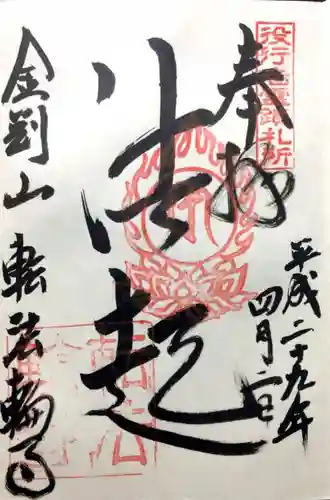 役行者霊蹟札所
奉拝
平成二十九年
四月二日
法起
金剛山
転法輪寺